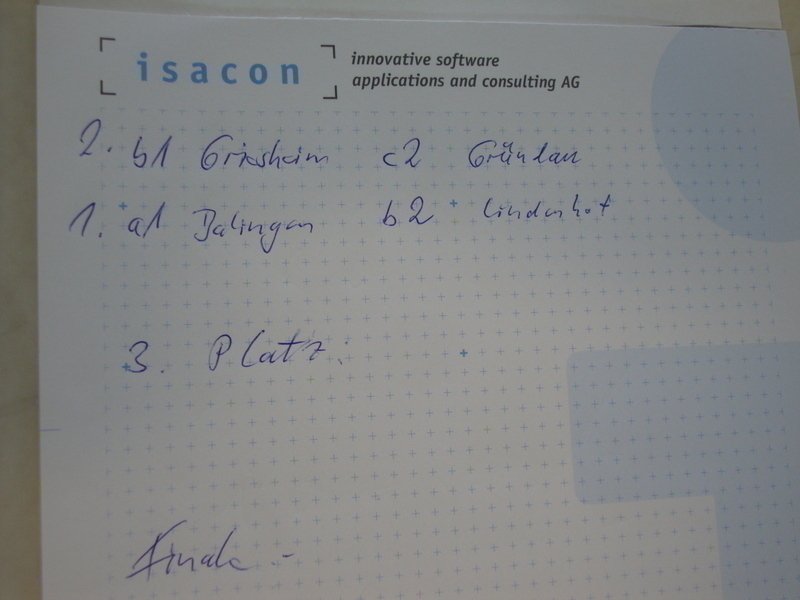 isacon
innovative software
applications and consulting AG
2. b1 Griesheim c2 Gründau
1. a1 Balingen b2 Lindenhof
3. Platz:
Finale -